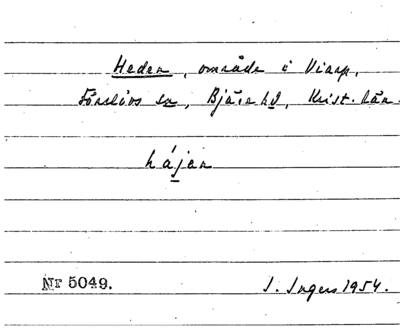 Heden, område i Viarp,
Förslövs sn, Bjäre hd, Krist. län.
hájan
Nr 5049.
I. Ingers 1954.